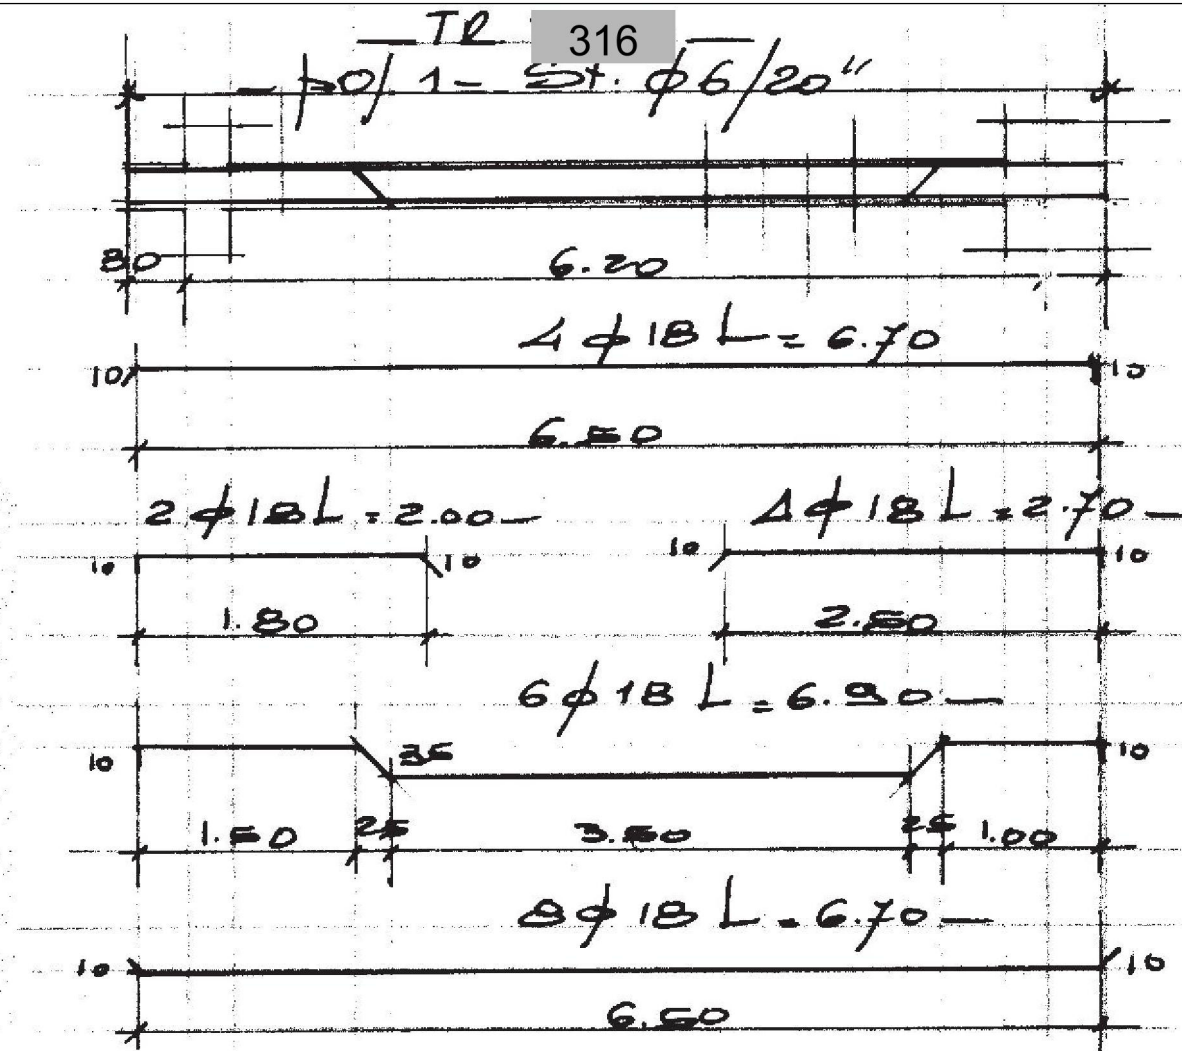 TR 316
70/1 - St. φ6/20"
30 6.20
4φ18 L = 6.70
10 10
6.50
2φ18 L = 2.00 — 4φ18 L = 2.70 —
10 10 10 10
1.80 2.50
6φ18 L = 6.90 —
10 35 10
1.50 25 3.50 25 1.00
8φ18 L = 6.70 —
10 10
6.50